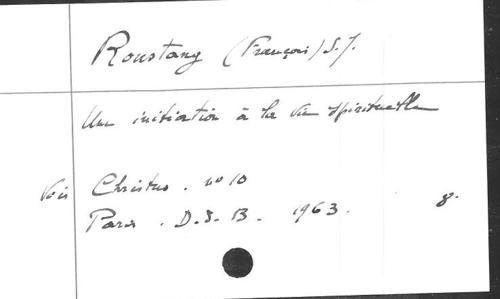 Roustang (François) S.J.
Une initiation à la vie spirituelle
Voir Christus. no 10
Paris. D.D.B. 1963. 8.